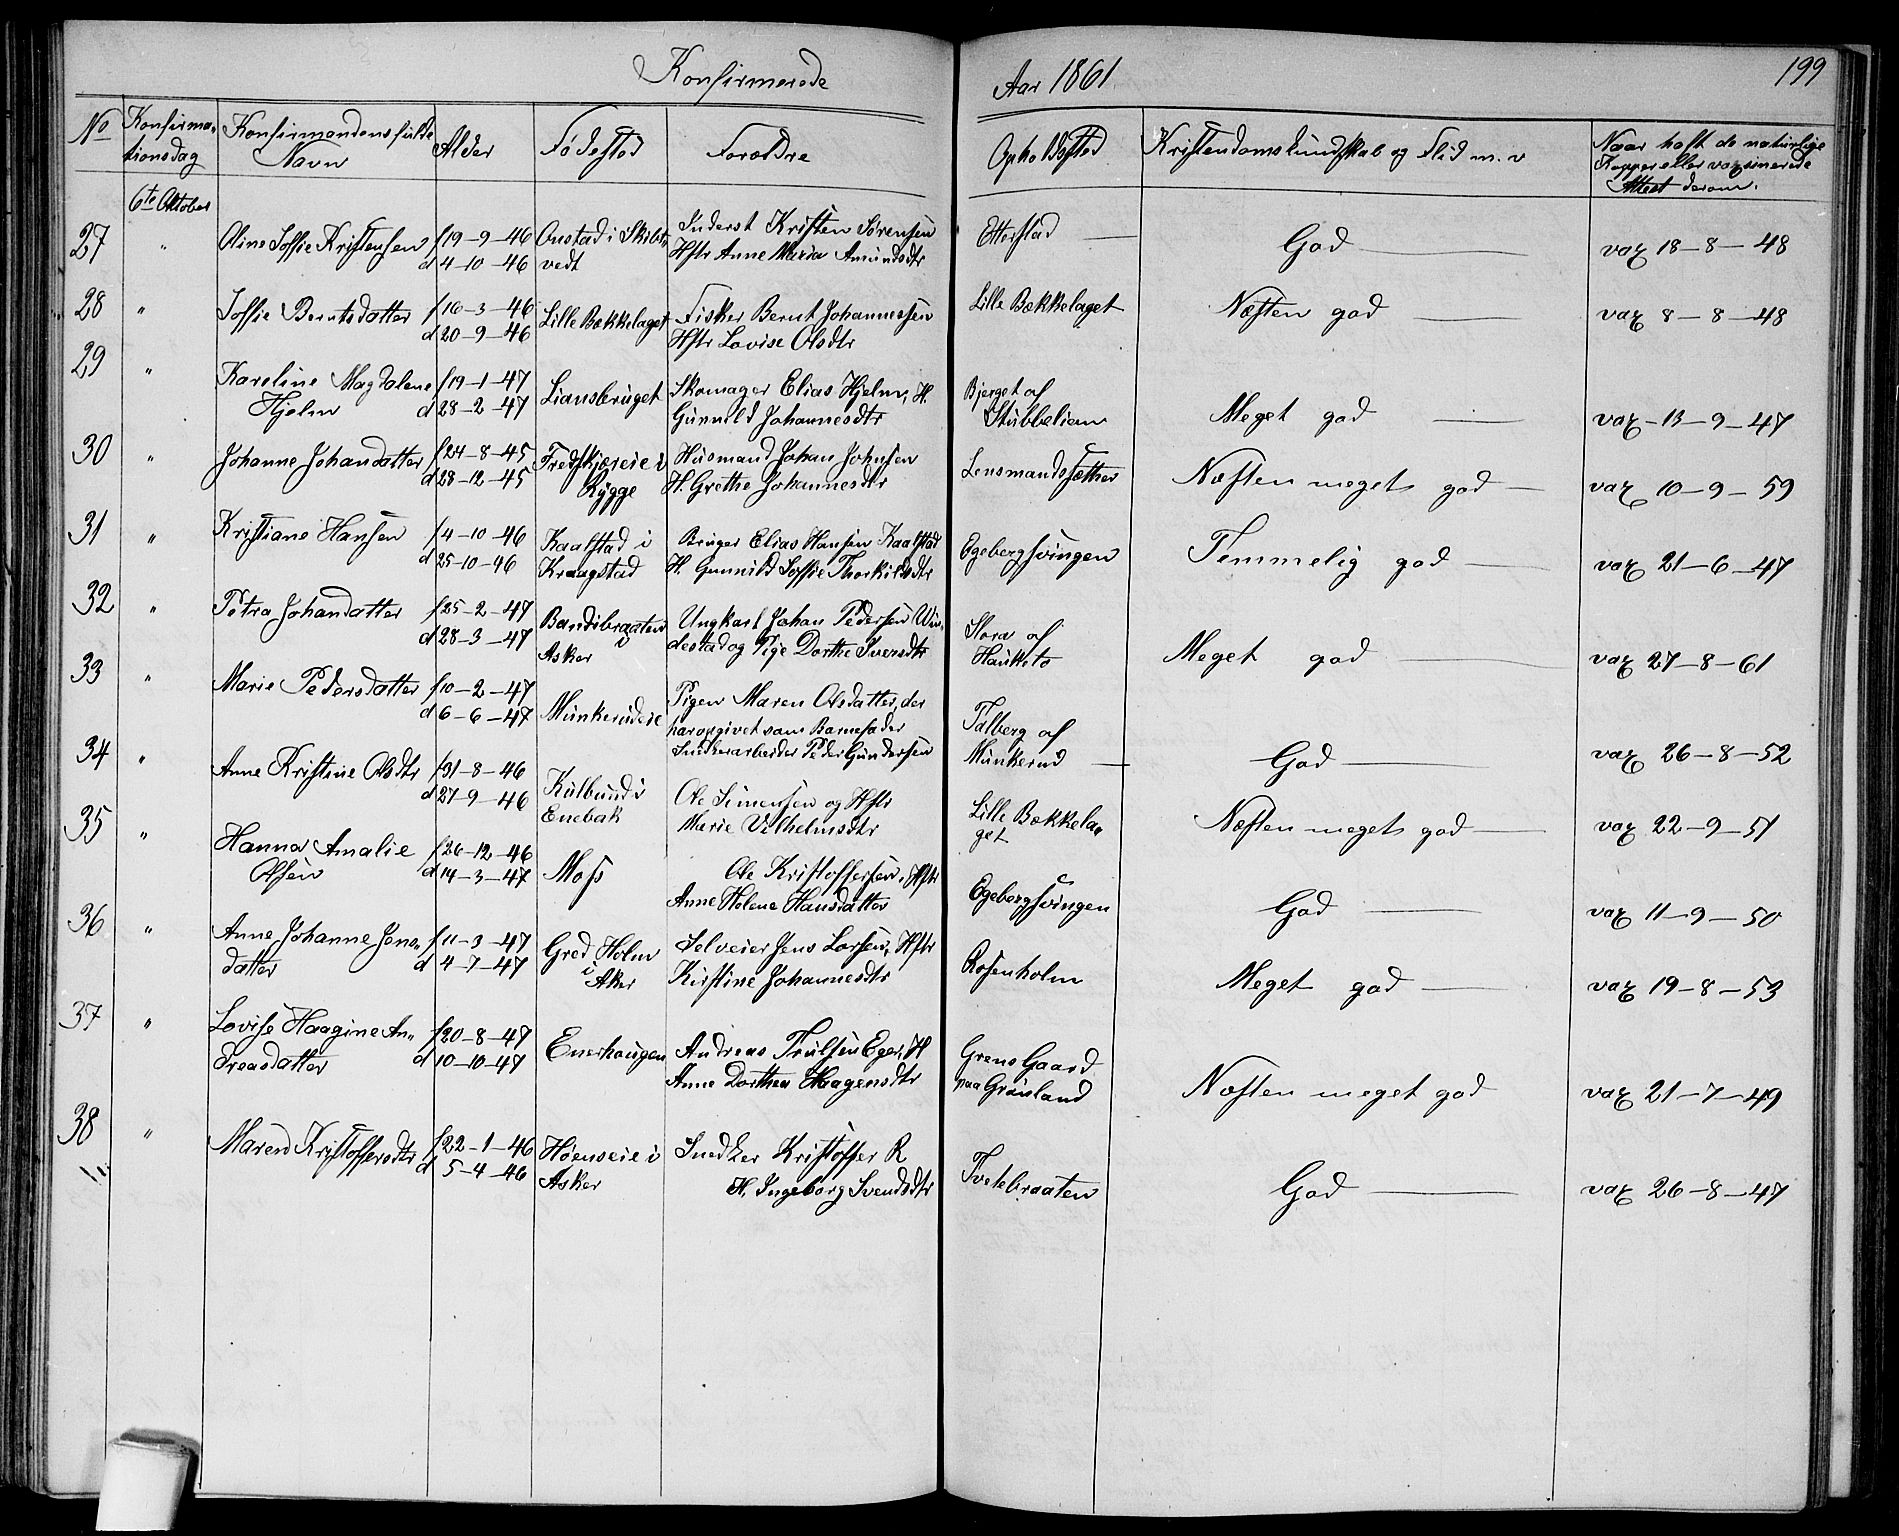 Konfirmerede Aar 1861. 199
No Konfirma- Konfirmandens fulde Alder Fødested Forældre Opholdssted Kristendomskundskab og Flid m. v Naar haft de naturlige
tionsdag Navn Kopper eller vaxsinerede
Attest derom.
6te Oktober
27 " Oline Soffie Kristensen f 19-9-46 Onstad i Skibt- Inderst Kristen Sørensen Etterstad — God — vax 18-8-48
d 4-10-46 vedt Hstr Anne Maria Amundsdtr
28 " Soffie Berntsdatter f 16-3-46 Lille Bækkelaget Fisker Bernt Johannessen Lille Bækkelaget Næsten god — vax 8-8-48
d 20-9-46 Hstr Lovise Olsdtr
29 " Karoline Magdalene f 19-1-47 Liansbruget Skomager Elias Hjelm, H. Bjerget af Meget god — vax 13-9-47
Hjelm d 28-2-47 Gunnild Johannesdtr Stubbelien
30 " Johanne Johansdatter f 24-8-45 Fredskjæreie i Husmand Johan Johnsen Lensmandssæther Næsten meget god — vax 10-9-59
d 28-12-45 Rygge H. Grethe Johannesdtr
31 " Kristiane Hansen f 4-10-46 Kaalstad i Bruger Elias Hansen Kaalstad Egebergsvingen Temmelig god — vax 21-6-47
d 25-10-46 Kraagstad H. Gunnild Soffie Thorkildsdtr
32 " Petra Johansdatter f 25-2-47 Bandibraaten Ungkarl Johan Pedersen Win- Stora af Meget god — vax 27-8-61
d 28-3-47 i Asker destad og Pige Dorthe Iversdtr Hauketo
33 " Marie Pedersdatter f 10-2-47 Munkerudeie Pigen Maren Olsdatter, der Talberg af God — vax 26-8-52
d 6-6-47 har opgivet som Barnefader Munkerud —
Peder Gundersen
34 " Anne Kristine Olsdtr f 31-8-46 Kulbund i Ole Simensen og Hstr Lille Bækkela- Næsten meget god — vax 22-9-51
d 27-9-46 Enebak Marie Vilhelmsdtr get
35 " Hanna Amalie f 26-12-46 Moss Ole Kristoffersen, Hstr Egebergsvingen God — vax 11-9-50
Olsen d 14-3-47 Anne Helene Hansdatter
36 " Anne Johanne Jens- f 11-3-47 Gred Holm Selveier Jens Larsen, Hstr Rosenholm Meget god — vax 19-8-53
datter d 4-7-47 i Aker Kirstine Johannesdtr
37 " Lovise Haagine An- f 20-8-47 Enerhaugen Andreas Trulsen Eger, H Grens Gaard Næsten meget god vax 21-7-49
dreasdatter d 10-10-47 Anne Dorthea Haagensdtr paa Grønland
38 " Maren Kristoffersdtr f 22-1-46 Høenseie i Snedker Kristoffer R Tvetebraaten God — vax 26-8-47
d 5-4-46 Asker H. Ingeborg Svendsdtr